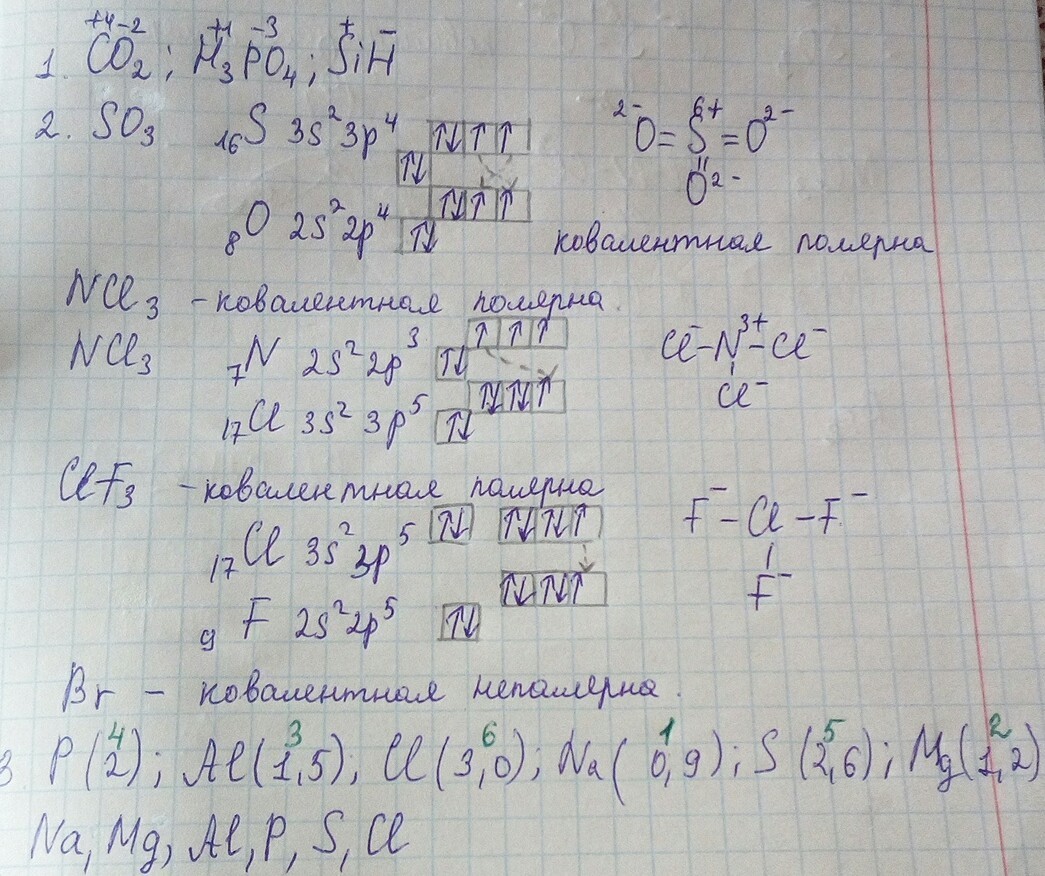 +4 -2 +1 -3 + -
1. CO₂; H₃PO₄; SiH
2. SO₃ ₁₆S 3s²3p⁴ ↑↓ ↑ ↑ ²⁻O=S⁶⁺=O²⁻
↑↓ ||
↑↓ ↑ ↑ O²⁻
₈O 2s²2p⁴ ↑↓ ковалентная полярна
NCl₃ - ковалентная полярна.
↑ ↑ ↑
NCl₃ ₇N 2s²2p³ ↑↓ Cl⁻-N³⁺-Cl⁻
↑↓ ↑↓ ↑ Cl⁻
₁₇Cl 3s² 3p⁵ ↑↓
ClF₃ - ковалентная полярна
₁₇Cl 3s²3p⁵ ↑↓ ↑↓ ↑↓ ↑ F⁻-Cl-F⁻
↑↓ ↑↓ ↑ F⁻
₉F 2s²2p⁵ ↑↓
Br - ковалентная непалярна.
4 3 6 1 5 2
3 P(2); Al(1,5); Cl(3,0); Na(0,9); S(2,6); Mg(1,2)
Na, Mg, Al, P, S, Cl